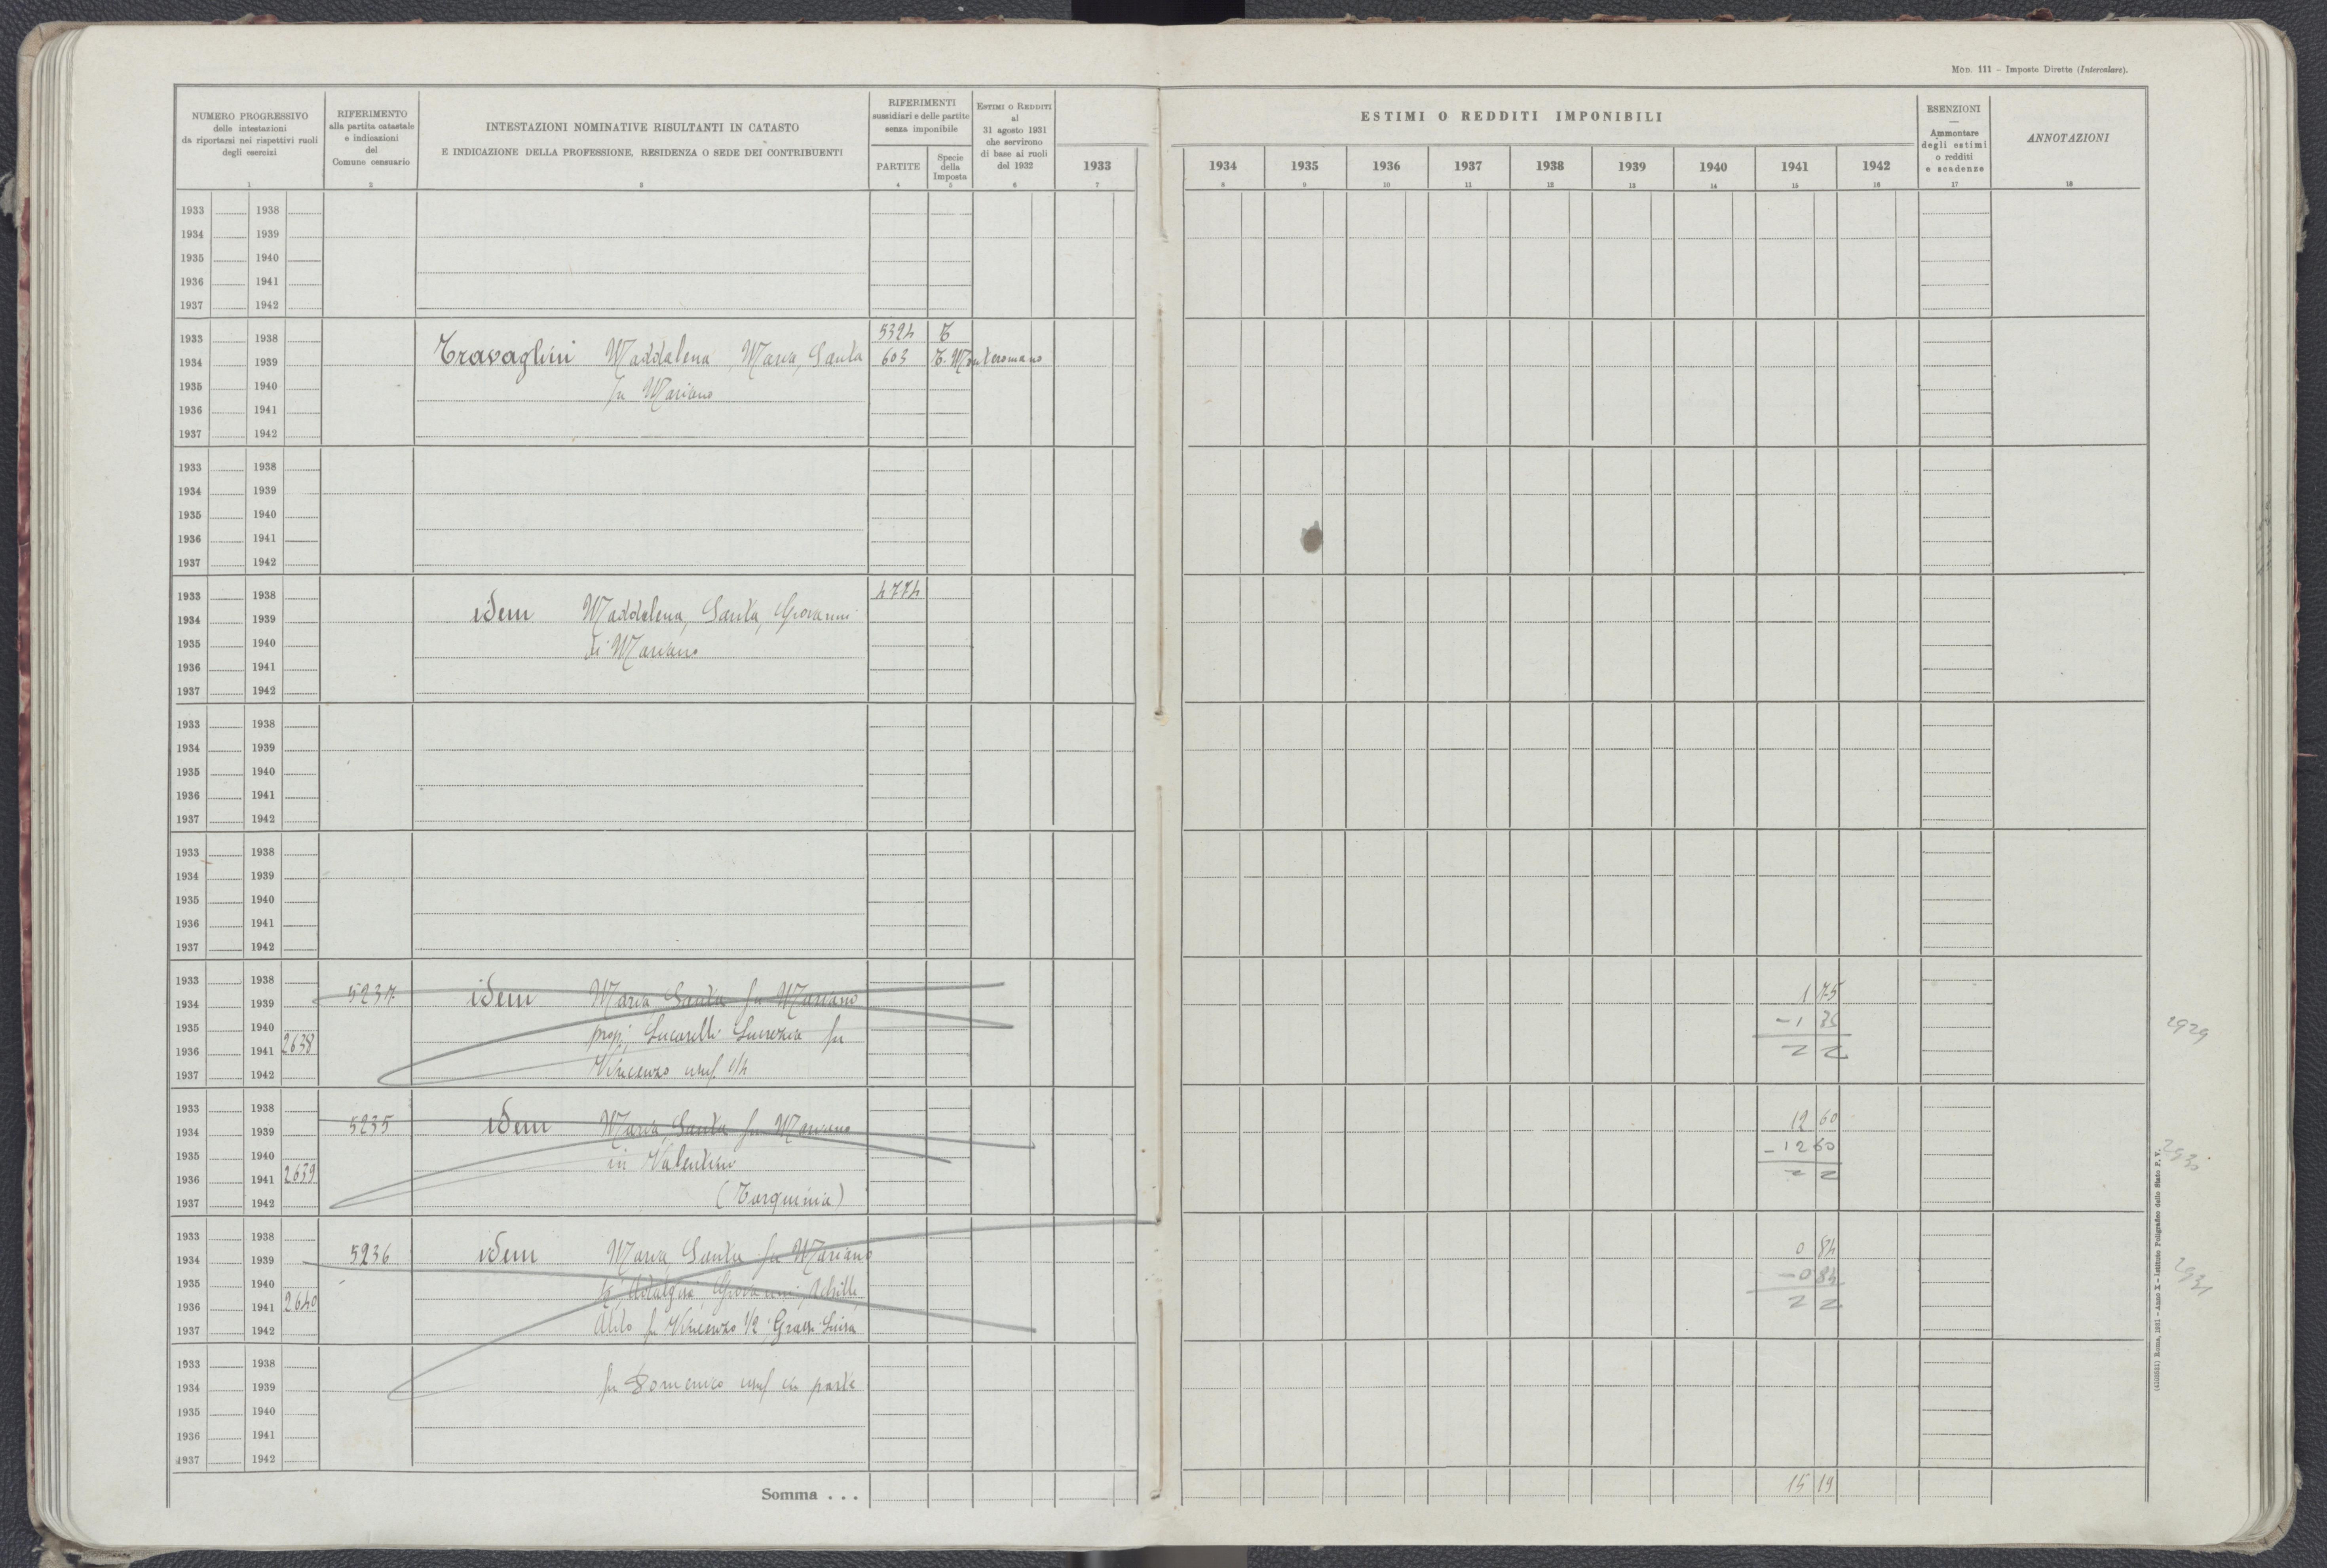 Mod. 111 – Imposte Dirette (Intercalare).
NUMERO PROGRESSIVO
delle intestazioni
da riportarsi nei rispettivi ruoli
degli esercizi
1
RIFERIMENTO
alla partita catastale
e indicazioni
del
Comune censuario
2
INTESTAZIONI NOMINATIVE RISULTANTI IN CATASTO
E INDICAZIONE DELLA PROFESSIONE, RESIDENZA O SEDE DEI CONTRIBUENTI
3
RIFERIMENTI
sussidiari e delle partite
senza imponibile
PARTITE
4
Specie
della
Imposta
5
ESTIMI O REDDITI
al
31 agosto 1931
che servirono
di base ai ruoli
del 1932
6
1933
7
ESTIMI O REDDITI IMPONIBILI
1934 1935 1936 1937 1938 1939 1940 1941 1942
8 9 10 11 12 13 14 15 16
ESENZIONI
—
Ammontare
degli estimi
o redditi
e scadenze
17
ANNOTAZIONI
18
1933 1938
1934 1939
1935 1940
1936 1941
1937 1942
1933 1938 5324 T
1934 1939 Travaglini Maddalena, Maria, Santa 603 T. Monteromano
1935 1940 fu Mariano
1936 1941
1937 1942
1933 1938
1934 1939
1935 1940
1936 1941
1937 1942
1933 1938 4774
1934 1939 idem Maddalena, Santa, Giovanni
1935 1940 di Mariano
1936 1941
1937 1942
1933 1938
1934 1939
1935 1940
1936 1941
1937 1942
1933 1938
1934 1939
1935 1940
1936 1941
1937 1942
1933 1938
1934 1939 5237 idem Maria, Santa fu Mariano 1 75
1935 1940 prop; Lucarelli Lucrezia fu – 1 35 2929
1936 1941 2638 2 2
1937 1942 Vincenzo usuf. 1/4
1933 1938
1934 1939 5235 idem Maria, Santa fu Mariano 12 60
1935 1940 in Valentini – 12 60
1936 1941 2639 2 2
1937 1942 (Tarquinia)
1933 1938
1934 1939 5236 idem Maria Santa fu Mariano 0 84
1935 1940 1/2, Adalgisa, Giovanni, Achille, – 0 84 2931
1936 1941 2640 2 2
1937 1942 Atilo fu Vincenzo 1/2; Grassi Luisa
1933 1938
1934 1939 fu Domenico usuf in parte
1935 1940
1936 1941
1937 1942
Somma . . . 15 19